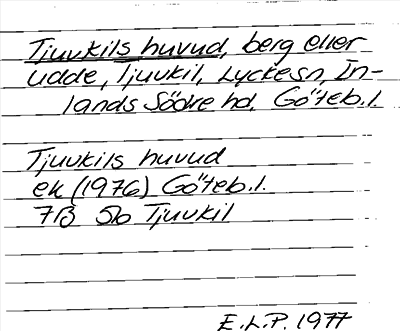 Tjuvkils huvud, berg eller
udde, Tjuvkil, Lyckesn, In-
lands Södre hd, Göteb. l.
Tjuvkils huvud
ek (1976) Göteb. l.
7B 5b Tjuvkil
E.L.P. 1977